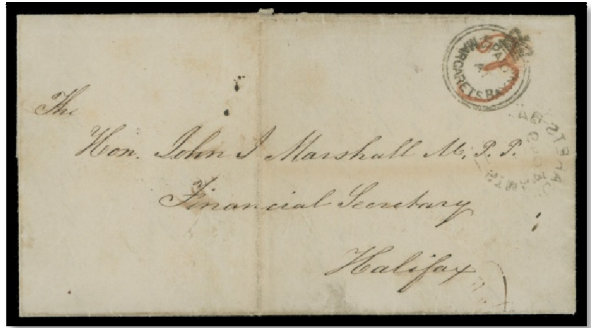 MARGARETS BAY
The
Hon. John J Marshall M.P.P.
Financial Secretary
Halifax